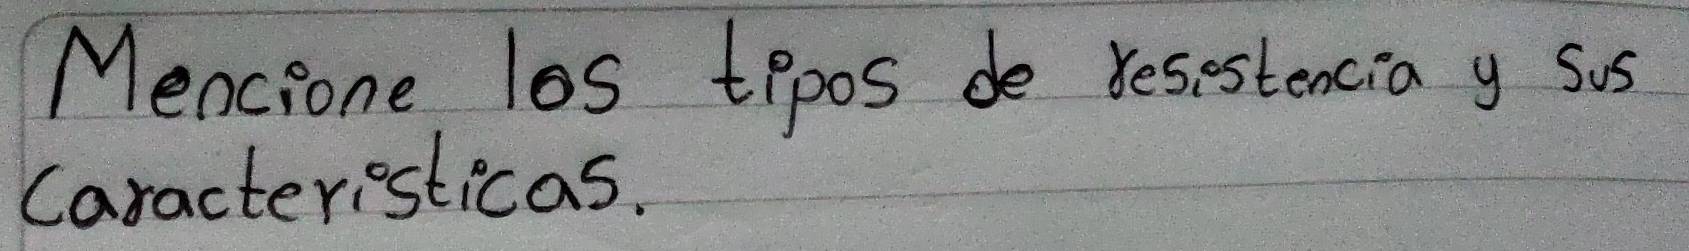 Mencione los tipos de resistencia y sus
características.